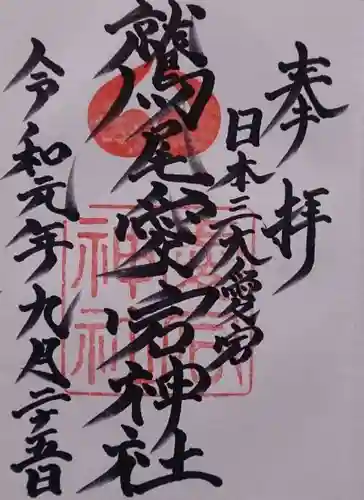 奉拝
日本三大愛宕
鷲尾愛宕神社
令和元年九月二十五日